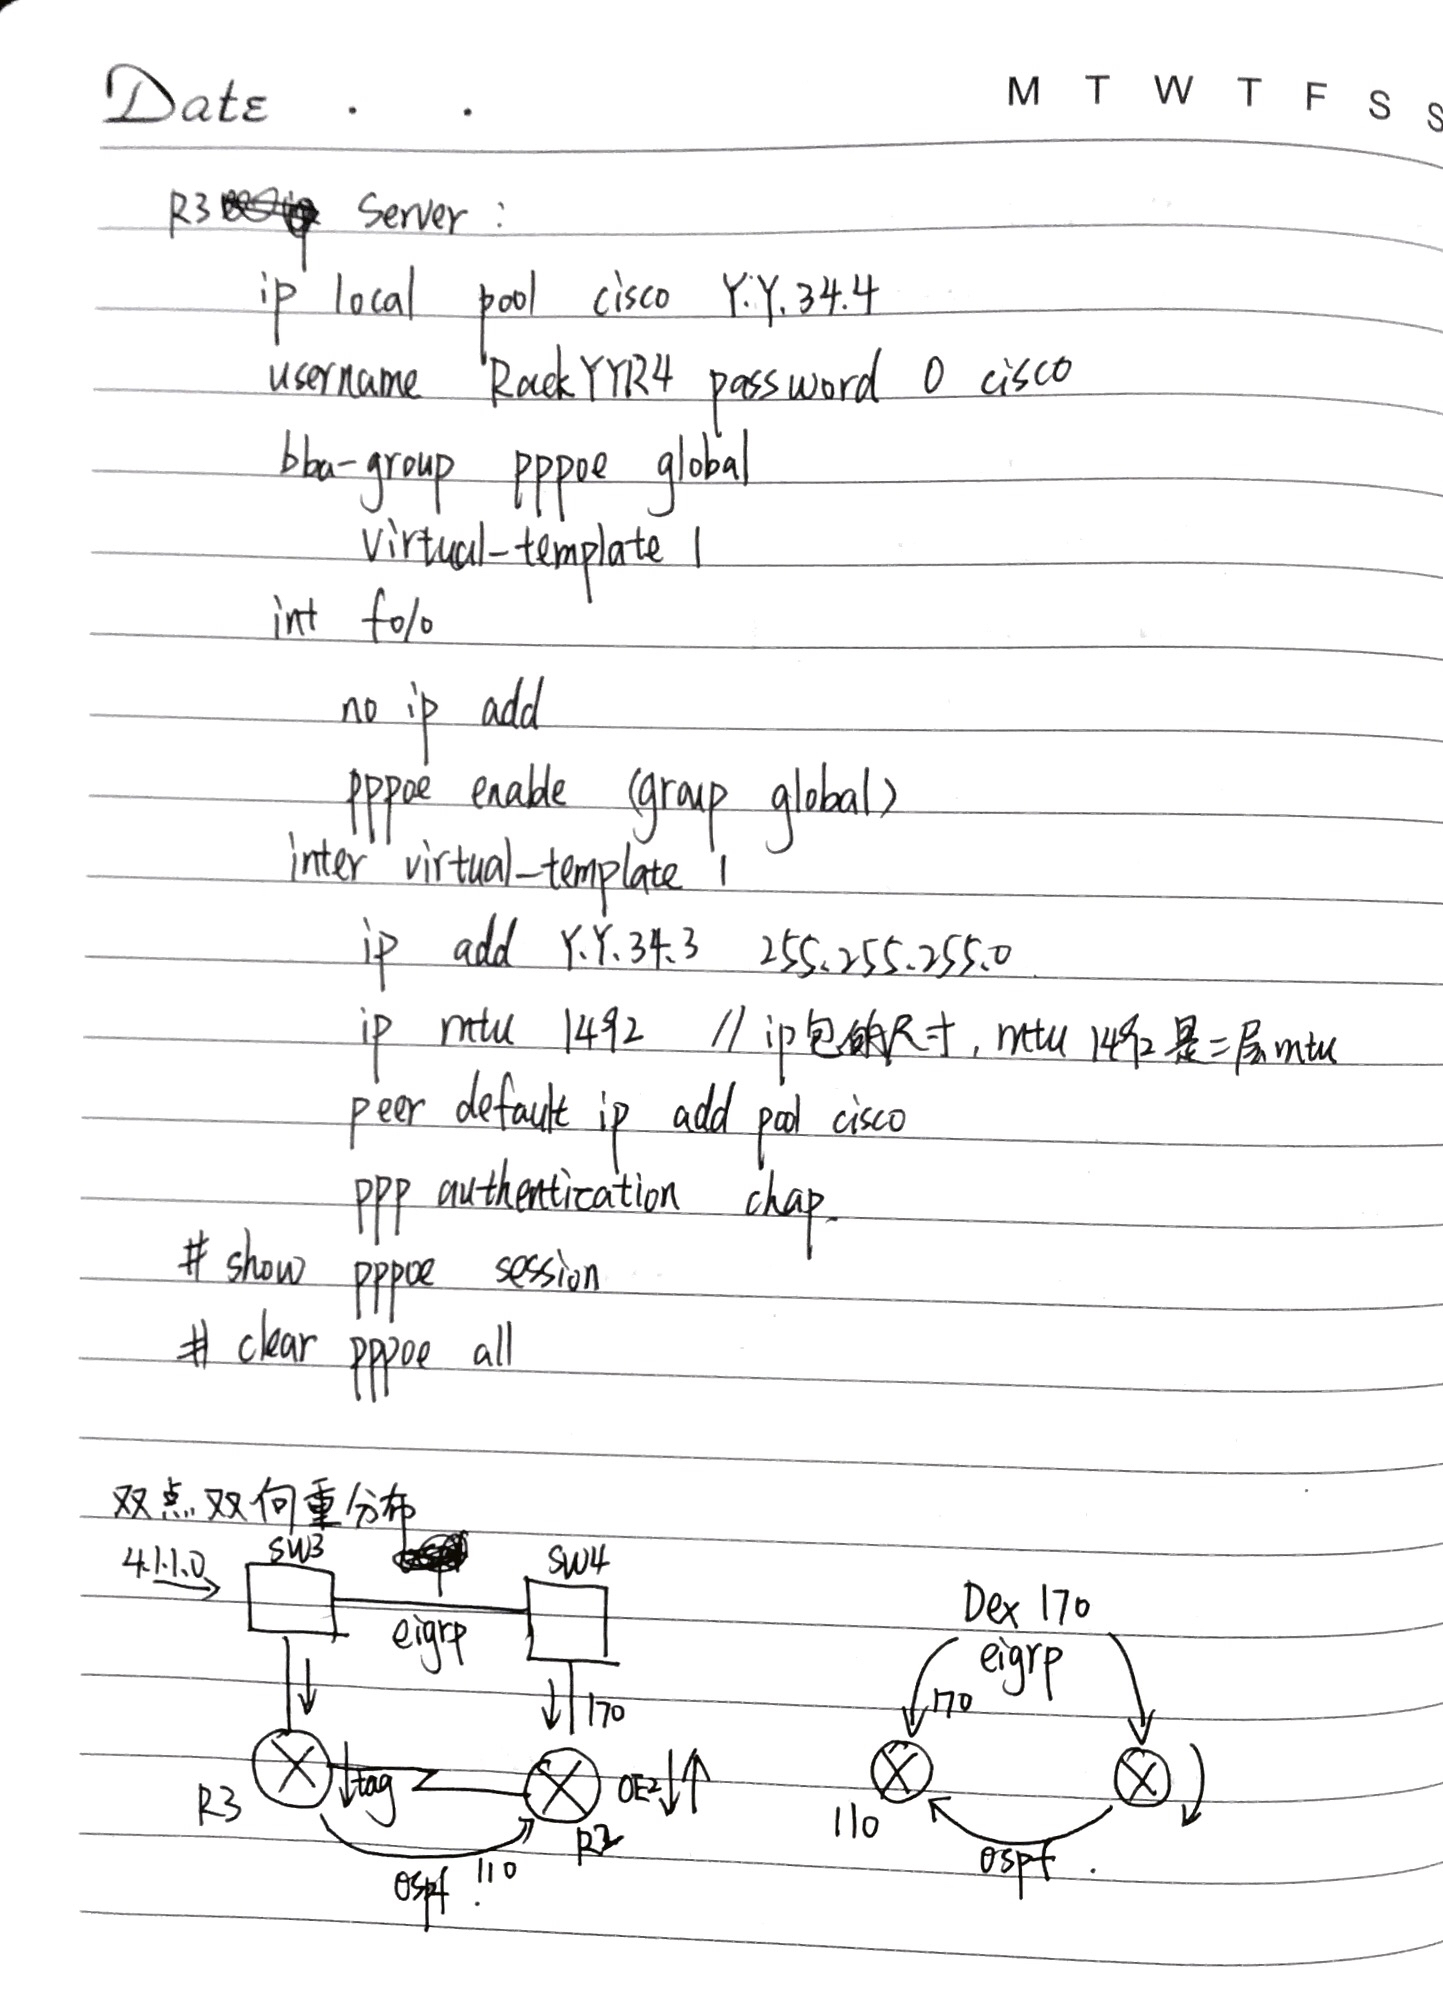 Date . .
M T W T F S S
R3 Server :
ip local pool cisco Y.Y.34.4
username RackYYR4 password 0 cisco
bba-group pppoe global
virtual-template 1
int f0/0
no ip add
pppoe enable (group global)
inter virtual-template 1
ip add Y.Y.34.3 255.255.255.0
ip mtu 1492 // ip包的尺寸, mtu 1492 是二层mtu
peer default ip add pool cisco
ppp authentication chap
# show pppoe session
# clear pppoe all
双点双向重分布
4.1.1.0 SW3 SW4
eigrp
170
R3 tag OE2 R2
ospf 110
Dex 170
eigrp
170
110
ospf